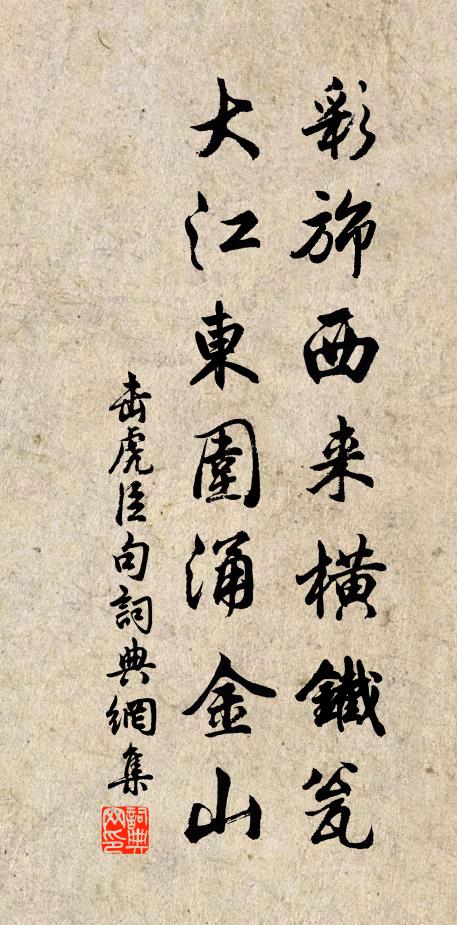 彩旆西来橫鐵瓮
大江東圍涌金山
虎臣句詞典網集
詞典
网印